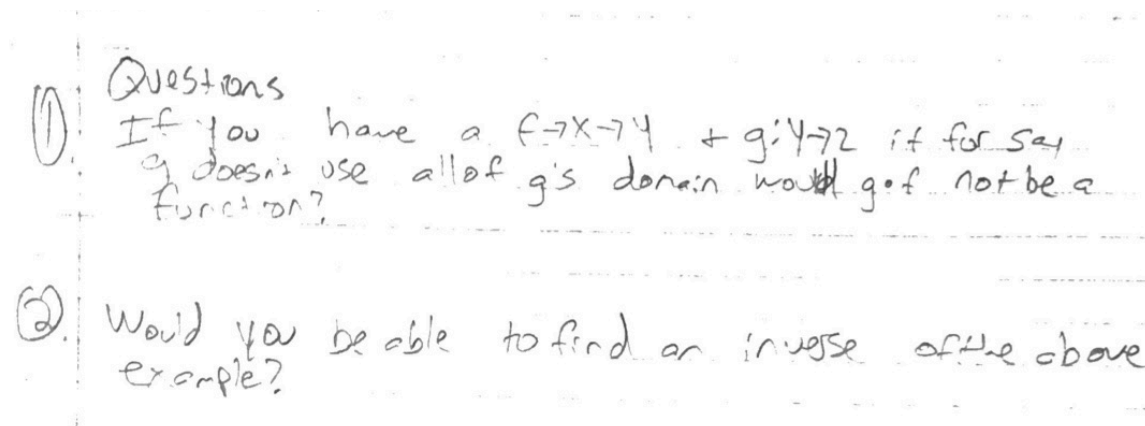 Questions
1. If you have a f→X→Y + g:Y→Z if for say
g doesn't use all of g's domain would g∘f not be a
function?
2. Would you be able to find an inverse of the above
example?